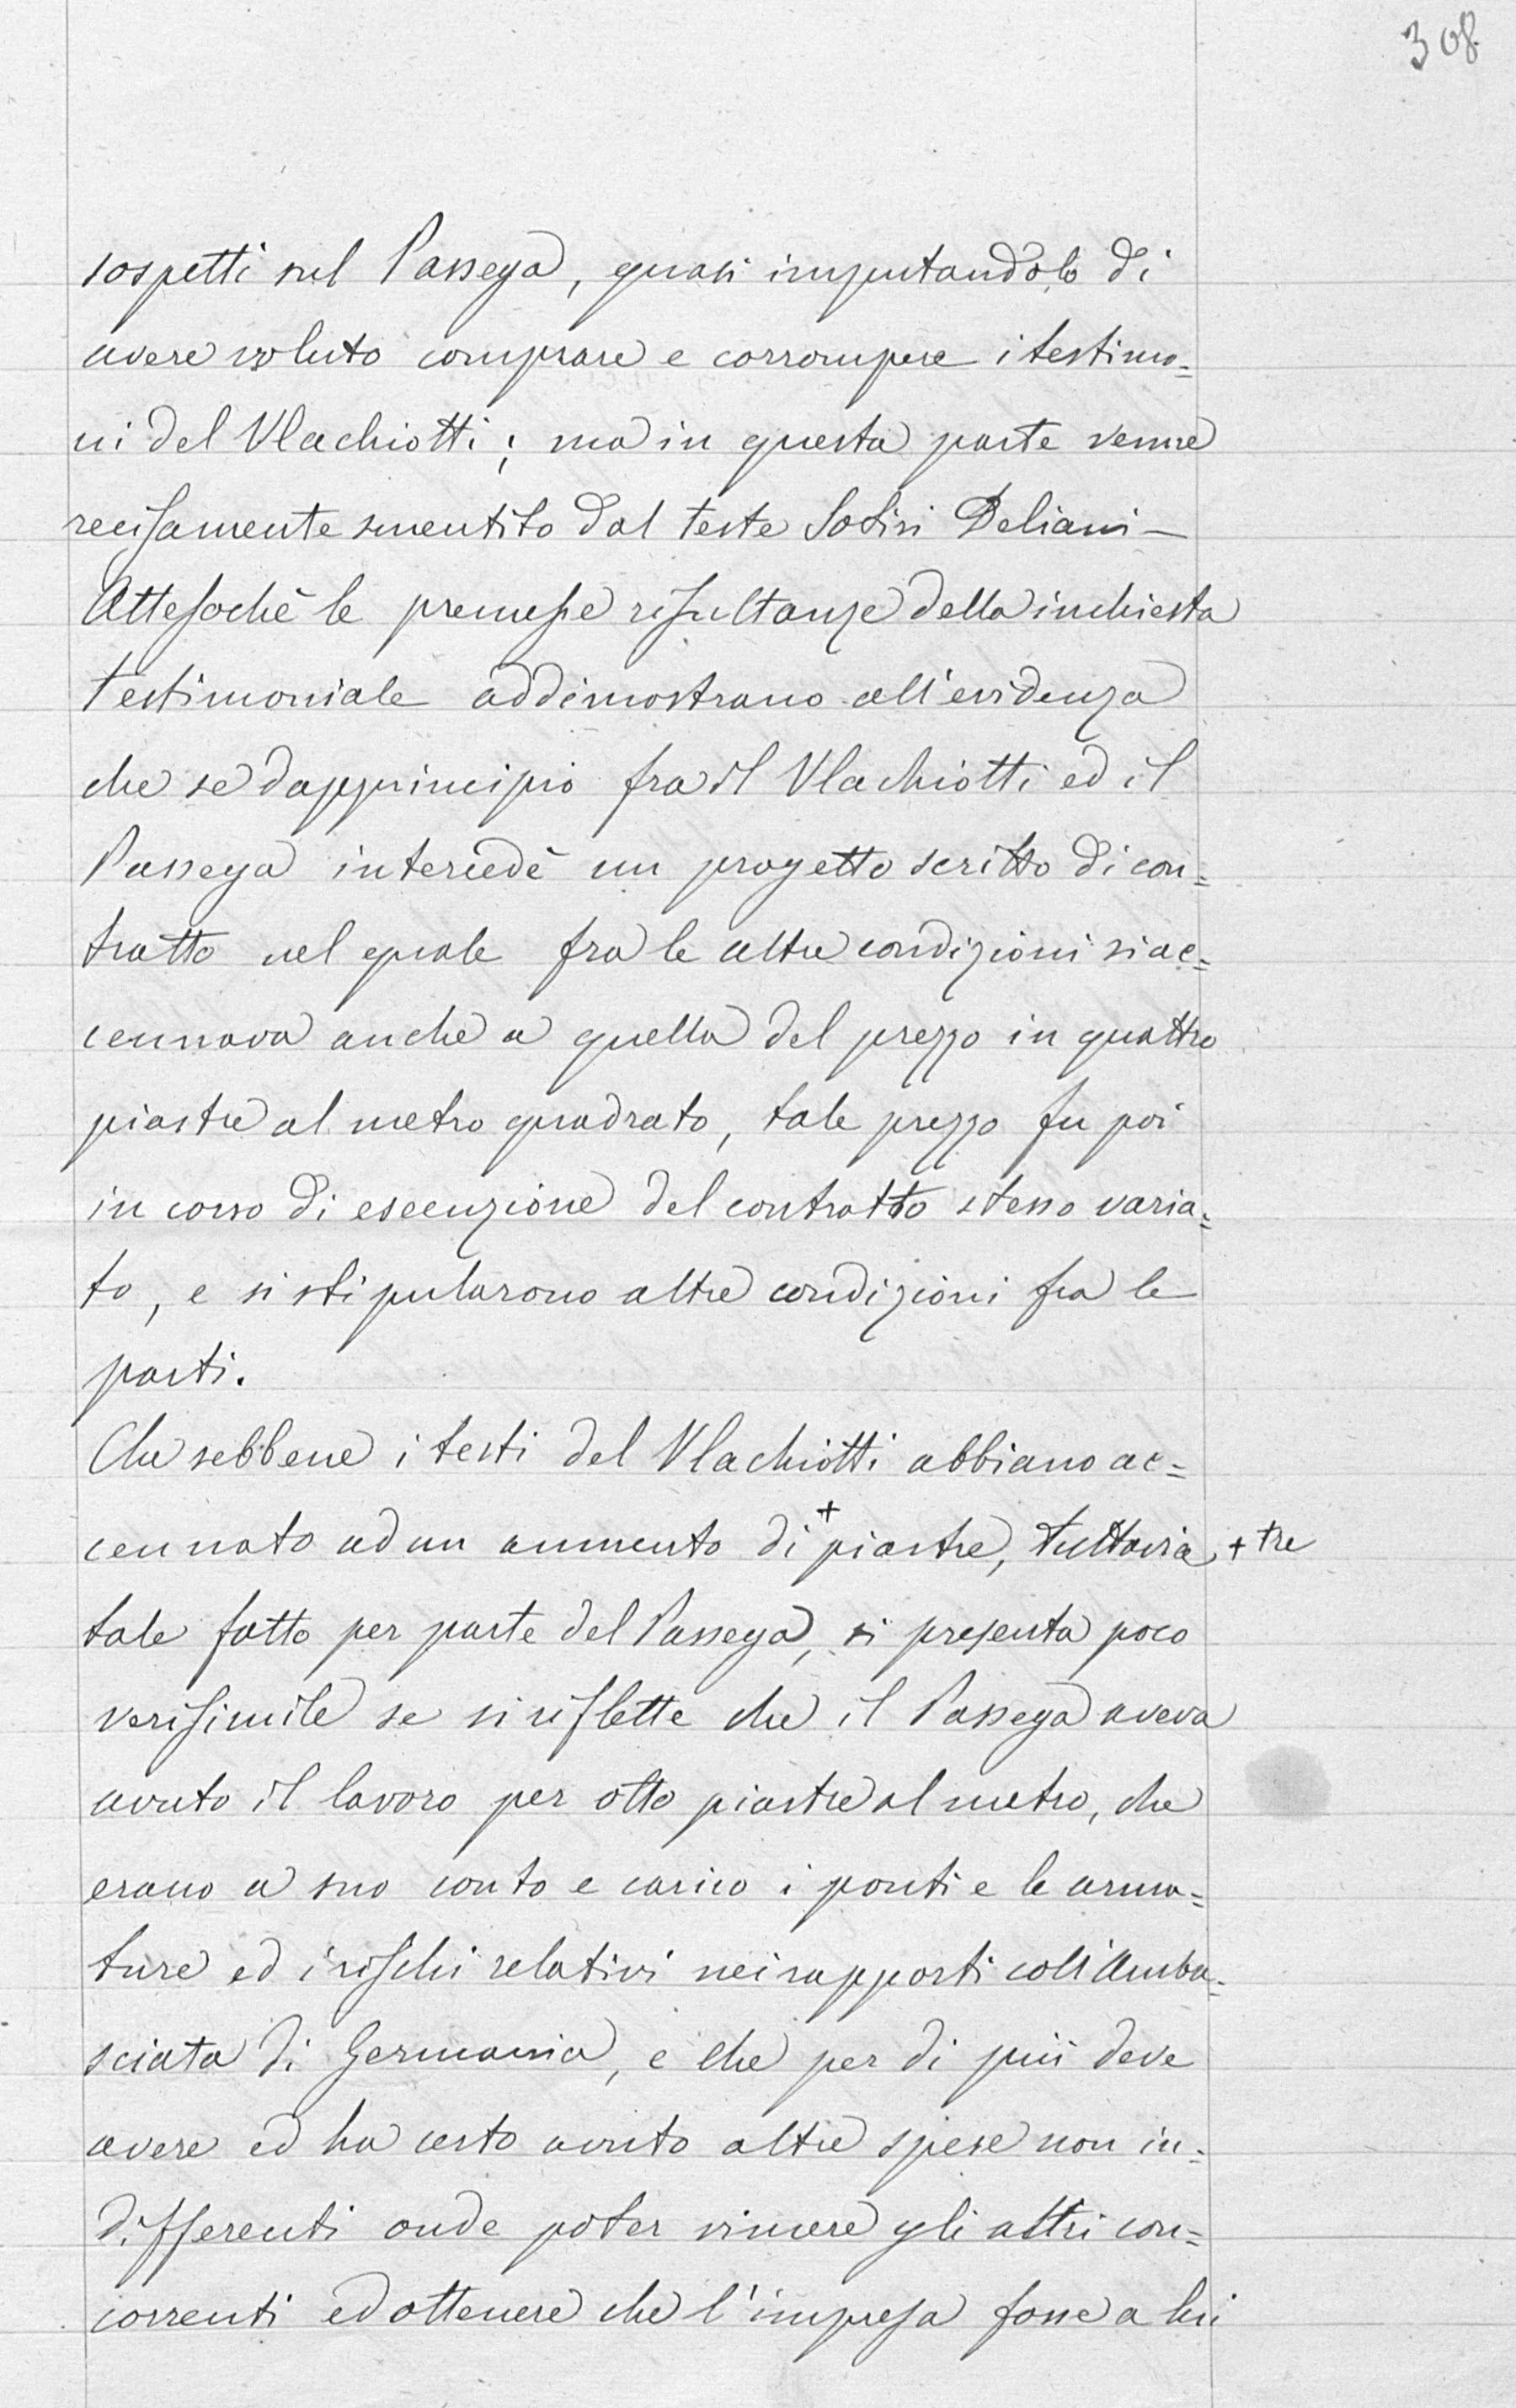 308
sospetti sul Passega, quasi imputandolo di
avere voluto comprare e corrompere i testimo=
ni del Vlachiotti; ma in questa parte venne
recisamente smentito dal teste Sotiri Deliani —
Attesochè le premesse risultanze della inchiesta
testimoniale addimostrano all'evidenza
che se dapprincipio fra il Vlachiotti ed il
Passega intercedè un progetto scritto di con=
tratto nel quale fra le altre condizioni si ac=
cennava anche a quella del prezzo in quattro
piastre al metro quadrato, tale prezzo fu poi
in corso di esecuzione del contratto stesso varia=
to, e si stipularono altre condizioni fra le
parti.
Che sebbene i testi del Vlachiotti abbiano ac=
cennato ad un aumento di + piastre, tuttavia + tre
tale fatto per parte del Passega, si presenta poco
verisimile se si riflette che il Passega aveva
avuto il lavoro per otto piastre al metro, che
erano a suo conto e carico i ponti e le arma=
ture ed i rischi relativi nei rapporti coll'Amba=
sciata di Germania, e che per di più deve
avere ed ha certo avuto altre spese non in=
differenti onde poter vincere gli altri con=
correnti ed ottenere che l'impresa fosse a lui